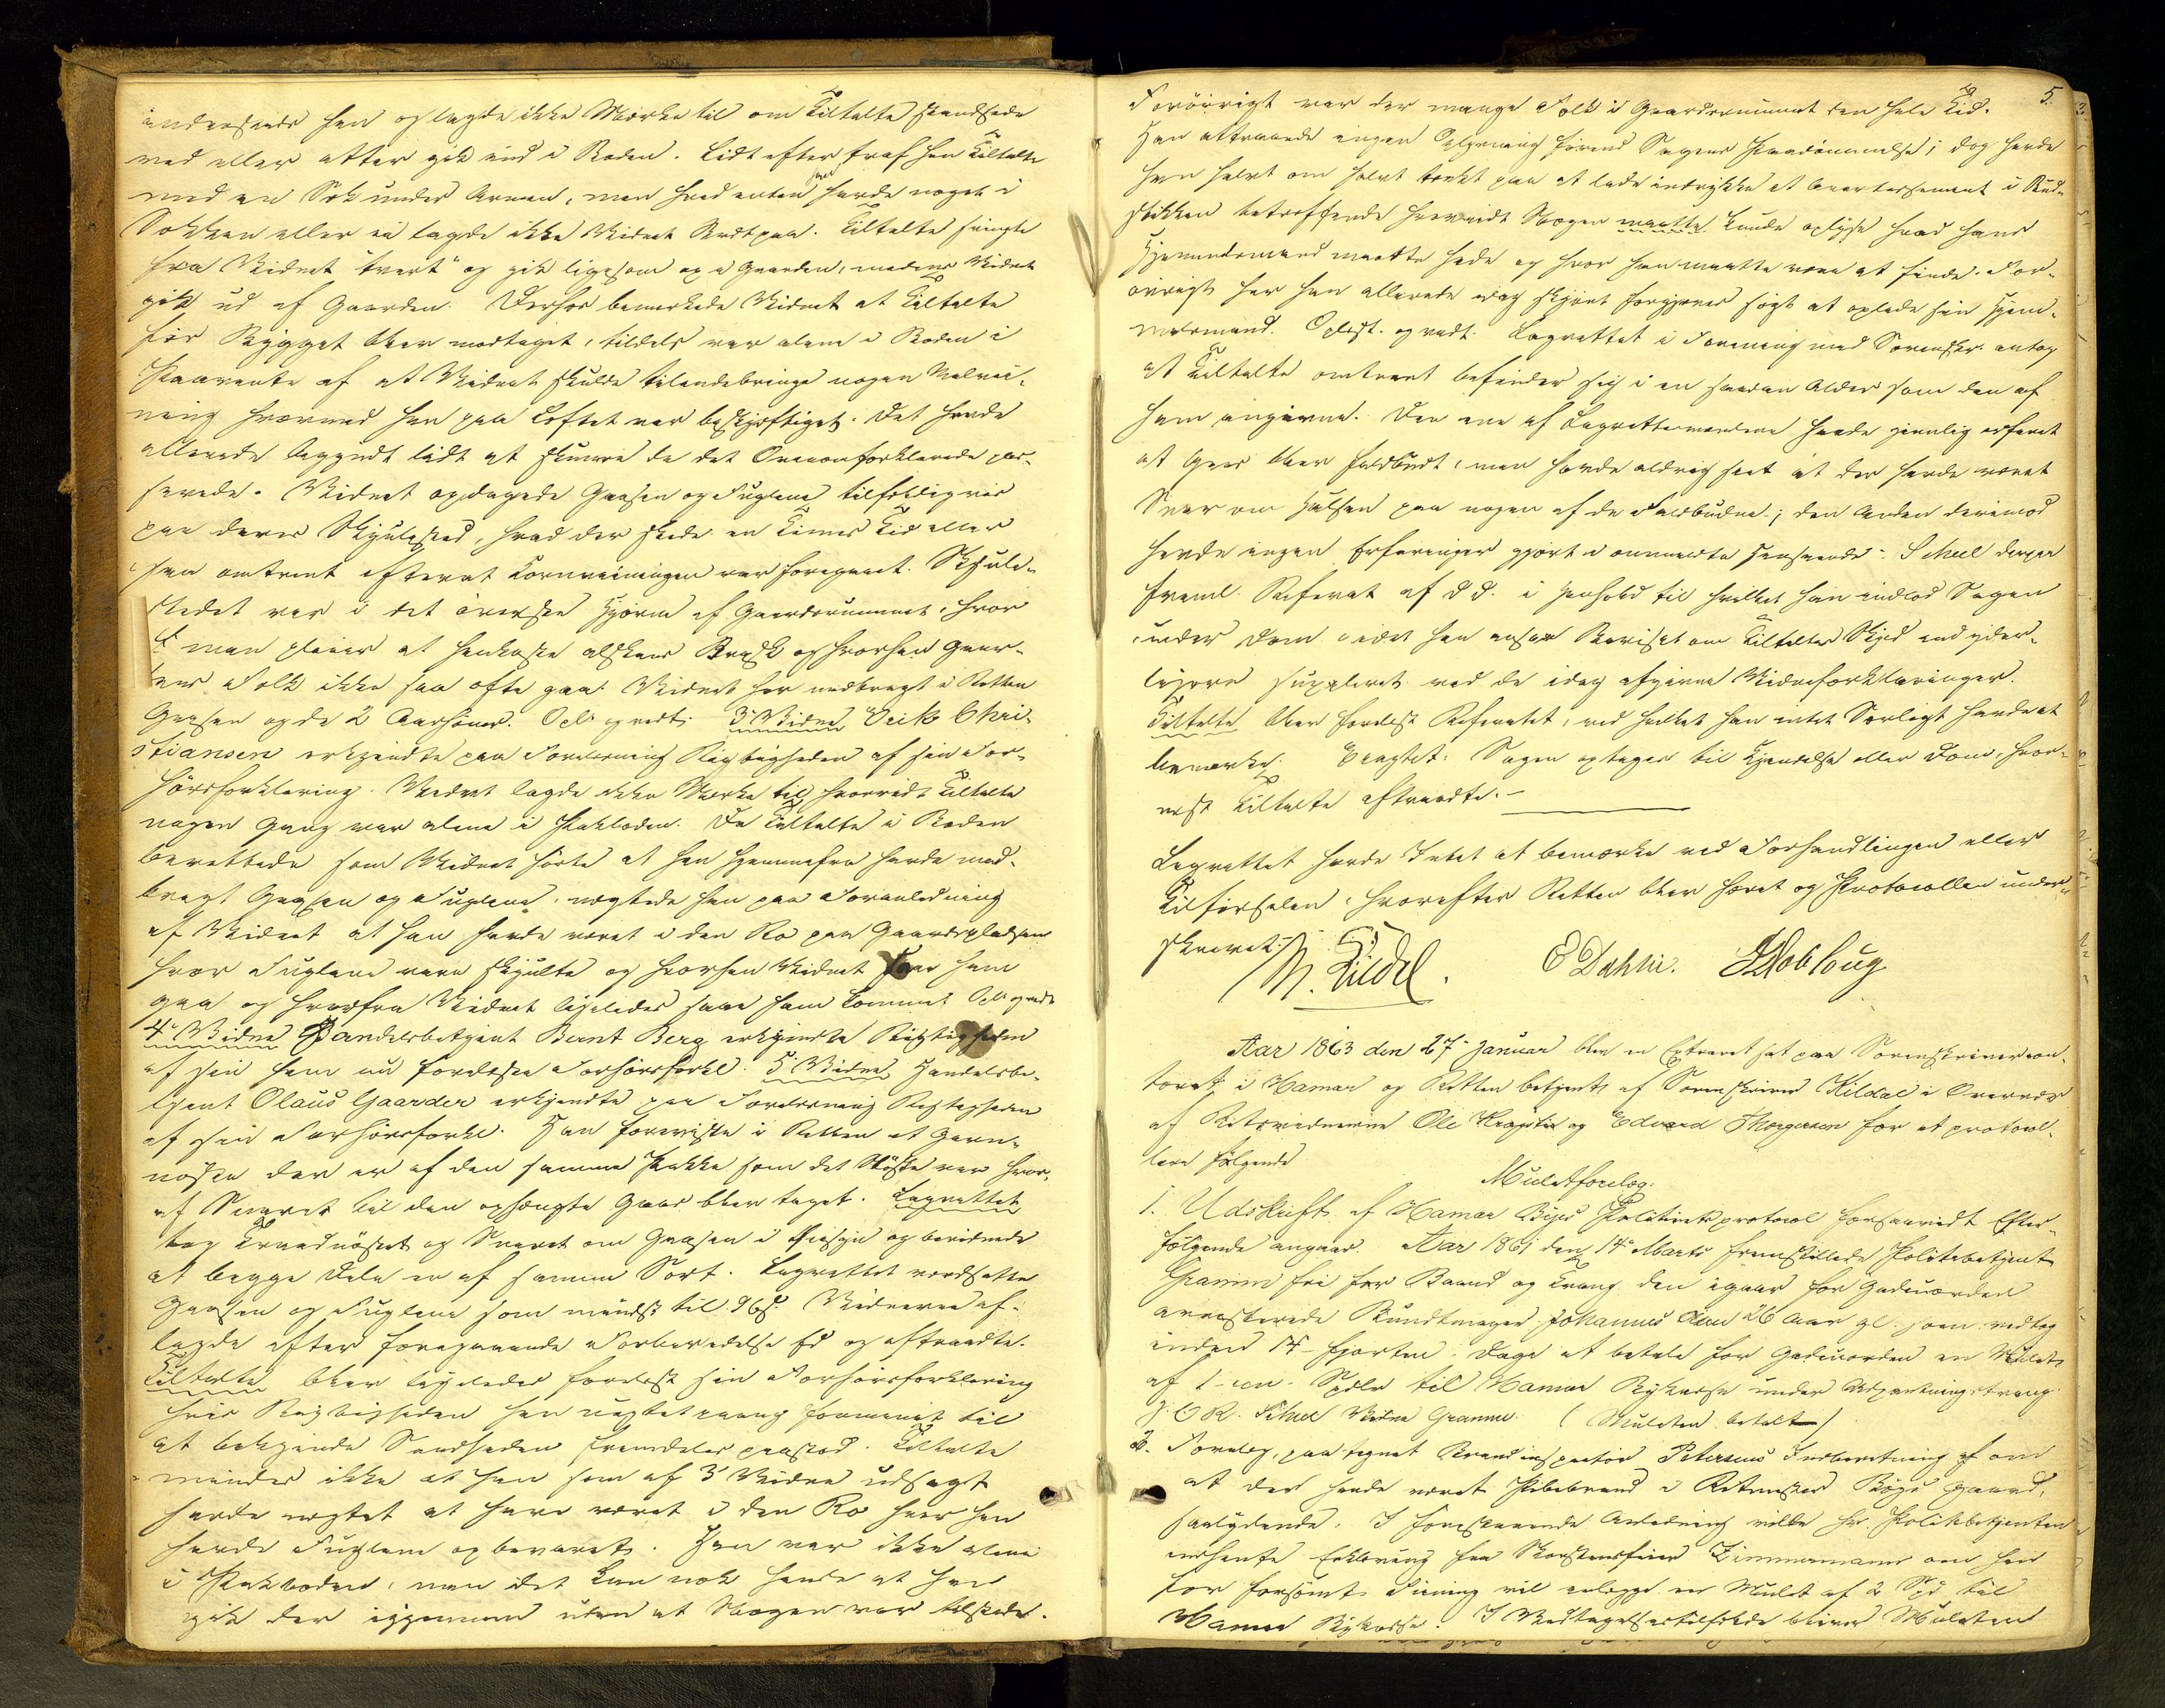 indeståede han og lagde ikke Mærke til om Tiltalte standsede
ved eller atter gik ind i Boden. Lidt efter traf han Tiltalte
med en Sæk under Armen, men hvad enten han havde noget i
Sækken eller ei lagde ikke Vidnet Agt paa. Tiltalte svingte
fra Vidnet "tvert" og gik ligesom op i Gaarden, medens Vidnet
gik ud af Gaarden. Derhos bemærkede Vidnet at Tiltalte
før Bygget blev modtaget, tildels var alene i Boden i
Paavente af at Vidnet skulde tilendebringe nogen
ning hvormed han paa Loftet var beskjæftiget. Det havde
allerede begyndt lidt at skumre da det Ovenforklarede pas-
serede. Vidnet opdagede Gaasen og Fuglene tilfældigvis
paa deres Skjulested, hvad der skede en Times Tid eller
saa omtrent efterat Kornveiningen var foregaaet. Skjule-
stedet var i det øverste Hjørne af Gaardsrummet, hvor
man pleier at henkaste alskens Brask og hvorhen Gaar-
dens Folk ikke saa ofte gaa. Vidnet har medbragt i Retten
Gaasen og de 2 Aarhöner. Opl. og vedt. 3. Vidne Erik Chri-
stiansen erkjendte paa Forelæsning Rigtigheden af sin For-
hørsforklaring. Vidnet lagde ikke Mærke til, hvorvidt Tiltalte
nogen Gang var alene i Pakboden. Da Tiltalte i Boden
berettede som Vidnet hørte at han hjemmefra havde med-
bragt Gaasen og Fuglene, nægtede han paa Foranledning
af Vidnet at han havde været i den Ro paa Gaardspladsen
hvor Fuglene vare skjulte og hvorhen Vidnet saae ham
gaa og hvorfra Vidnet ligeledes saae ham komme. Opl. og vedt.
4. Vidne Handelsbetjent Bernt Berg erkjendte Rigtigheden
af sin ham nu forelæste Forhørsforkl. 5. Vidne Handelsbe-
tjent Olaus Gaarder erkjendte paa Forelæsning Rigtigheden
af sin Forhørsforkl. Han foreviste i Retten et Garn-
nøste der er af den samme Pakke som det Nøste var hvor-
af Snøret til den ophængte Gaas blev taget. Lagrettet
tog Traadnøstet og Snøret om Gaasen i Øiesyn og bevidnede
at begge Dele er af samme Sort. Lagrettet værdsatte
Gaasen og Fuglene som mindst til 96 s. Vidnerne af-
lagde efter foregaaende Forberedelse Ed og aftraadte.
Tiltalte blev ligeledes forelæst sin Forhørsforklaring
hvis Rigtigheden han uagtet paany formanet til
at bekjende Sandheden fremdeles paastod. Tiltalte
mindes ikke at han som af 3 Vidne udsagt
havde nægtet at have været i den Ro hvor han
havde Fuglene opbevaret. Han var ikke alene
i Pakboden, men det kan nok hænde at han
gik der igjennem uden at Nogen var tilstede.
5.
Forøvrigt var der mange Folk i Gaardsrummet den hele Tid.
Han attraaede ingen Oplysning førend Sagens Paadømmelse; dog havde
han halvt om halvt tænkt paa at lade indrykke et Avertissement i Bud-
stikken betreffende hvorvidt Nogen maatte kunde oplyse hvad hans
Hjemmelsmand maatte hede og hvor han maatte være at finde. For-
øvrigt har han allerede idag skjønt forgjæves søgt at opleede sin Hjem-
melsmand. Oplæst. og vedt. Lagrettet i Forening med Sorenskr. antog
at Tiltalte omtrent befinder sig i en saadan Alder som den af
ham angivne. Den ene af Lagrettemændene havde jevnlig erfaret
at Gjæs blev falbudt, men havde aldrig seet at der havde været
Snor om Halsen paa nogen af de Falbudne; den Anden derimod
havde ingen Erfaringer gjort i ommeldte Henseende. Scheel derpaa
freml. Referat af d. D. i Henhold til hvilket han indlod Sagen
under Dom idet han ansaa Beviset om Tiltaltes Skyld end yder-
ligere suppleret ved de idag afgivne Vidneforklaringer.
Tiltalte blev forelæst Referatet, ved hvilket han intet Særligt havde at
bemærke. Eragtet: Sagen optages til Kjendelse eller Dom, hvor-
næst Tiltalte aftraadte.
Lagrettet havde Intet at bemærke ved Forhandlingen eller
Tilførselen, hvorefter Retten blev hævet og Protocollen under-
skrevet:
N. Kildal. E Dahlii. Hobloug
Aar 1863 den 27. Januar blev en Extraret sat paa Sorenskrivercon-
toret i Hamar og Retten betjent af Sorenskriver Kildal i Overvær
af Retsvidnerne Ole og Edvard Thorgersen for at protocol-
lere følgende
Mulctforelæg.
1. Udskrift af Hamar Byes Politiretsprotocol forsaavidt Efter-
følgende angaar. Aar 1861 den 14. Marts fremstillede Politibetjent
Gramm fri for Baand og Tvang den igaar for Gadeuorden
arresterede Bundtmager Johannes Olsen 26 Aar gl. som vedtog
inden 14 - fjorten - Dage at betale for Gadeuorden en Mulct
af 1 - een - Spdlr til Hamar Bykasse under Udpantningstvang.
J. C R. Scheel Vidne Gramm. (Mulcten betalt)
2. Forelæg, paategnet Brandinspectør Petersens Indberetning af om
at der havde været Pibebrand i Ritmester Bøgs Gaard,
saalydende: I foranstaaende Anledning vilde Hr. Politibetjenten
indhente Erklæring fra Skorsteensfeier Zimmermann om han
for forsømt Feining vil erlægge en Mulct af 2 Spd. til
Hamar Bykasse. I Vedtagelsestilfælde bliver Mulcten